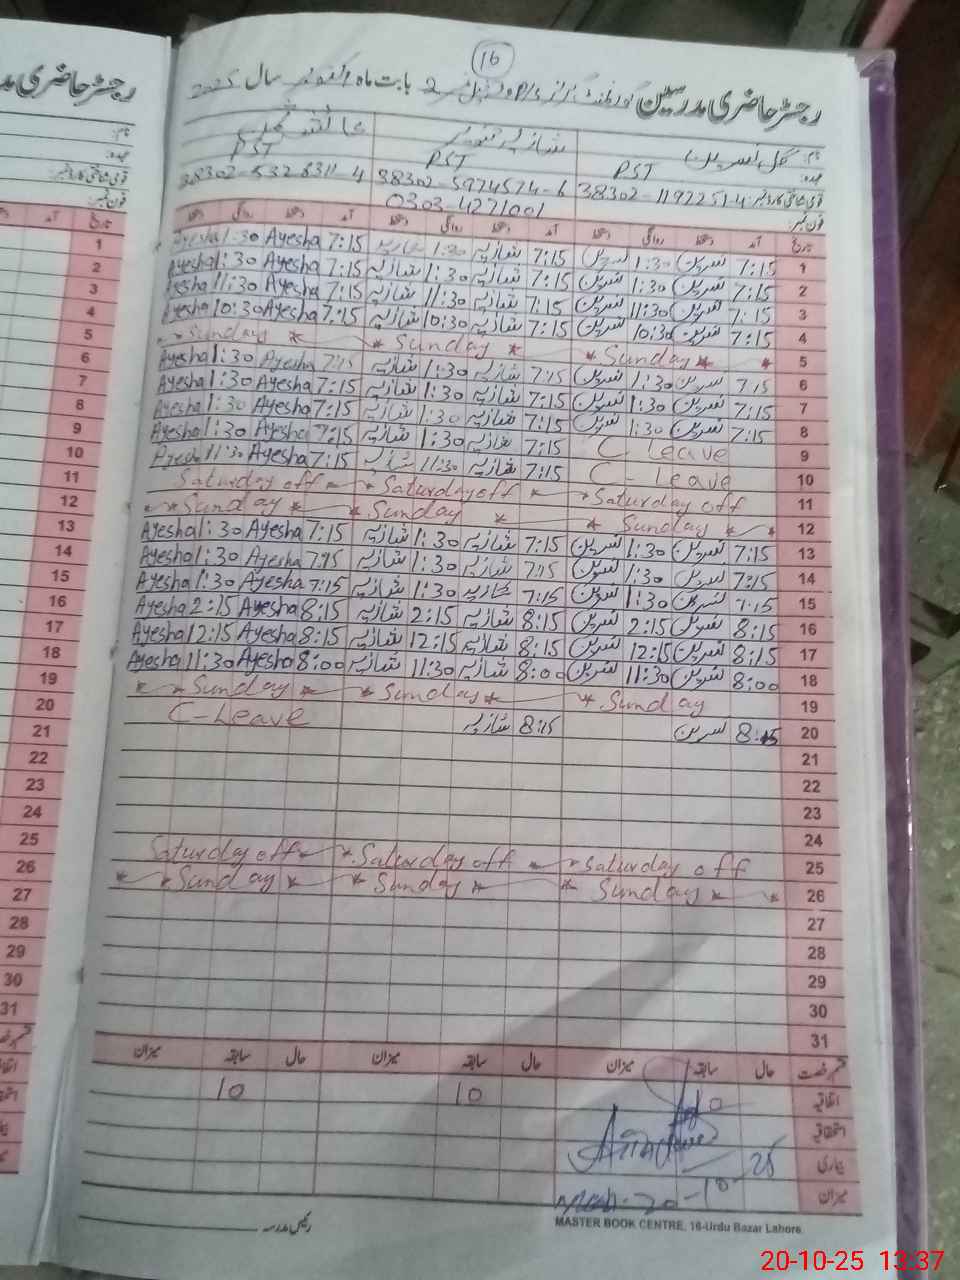 16
رجسٹر حاضری مدرسین گورنمنٹ گرلز P/S بابت ماہ اکتوبر سال 2025
نام: گل نسرین شازیہ عائشہ
عہدہ: PST PST PST
قومی شناختی کارڈ نمبر: 38302-1192251-4 38302-5974574-6 38302-5328311-4
فون نمبر: 0303-4271001
تاریخ آمد دستخط روانگی دستخط آمد دستخط روانگی دستخط آمد دستخط روانگی دستخط
1 7:15 نسرین 1:30 نسرین 7:15 شازیہ 1:30 شازیہ 7:15 Ayesha 1:30 Ayesha
2 7:15 نسرین 1:30 نسرین 7:15 شازیہ 1:30 شازیہ 7:15 Ayesha 1:30 Ayesha
3 7:15 نسرین 11:30 نسرین 7:15 شازیہ 11:30 شازیہ 7:15 Ayesha 11:30 Ayesha
4 7:15 نسرین 10:30 نسرین 7:15 شازیہ 10:30 شازیہ 7:15 Ayesha 10:30 Ayesha
5 Sunday Sunday Sunday
6 7:15 نسرین 1:30 نسرین 7:15 شازیہ 1:30 شازیہ 7:15 Ayesha 1:30 Ayesha
7 7:15 نسرین 1:30 نسرین 7:15 شازیہ 1:30 شازیہ 7:15 Ayesha 1:30 Ayesha
8 7:15 نسرین 1:30 نسرین 7:15 شازیہ 1:30 شازیہ 7:15 Ayesha 1:30 Ayesha
9 C Leave 7:15 شازیہ 1:30 شازیہ 7:15 Ayesha 1:30 Ayesha
10 C-Leave 7:15 شازیہ 11:30 شازیہ 7:15 Ayesha 11:30 Ayesha
11 Saturday off Saturday off Saturday off
12 Sunday Sunday Sunday
13 7:15 نسرین 1:30 نسرین 7:15 شازیہ 1:30 شازیہ 7:15 Ayesha 1:30 Ayesha
14 7:15 نسرین 1:30 نسرین 7:15 شازیہ 1:30 شازیہ 7:15 Ayesha 1:30 Ayesha
15 7:15 نسرین 1:30 نسرین 7:15 شازیہ 1:30 شازیہ 7:15 Ayesha 1:30 Ayesha
16 8:15 نسرین 2:15 نسرین 8:15 شازیہ 2:15 شازیہ 8:15 Ayesha 2:15 Ayesha
17 8:15 نسرین 12:15 نسرین 8:15 شازیہ 12:15 شازیہ 8:15 Ayesha 12:15 Ayesha
18 8:00 نسرین 11:30 نسرین 8:00 شازیہ 11:30 شازیہ 8:00 Ayesha 11:30 Ayesha
19 Sunday Sunday Sunday
20 8:15 نسرین 8:15 شازیہ C-Leave
21
22
23
24
25 Saturday off Saturday off Saturday off
26 Sunday Sunday Sunday
27
28
29
30
31
قسم رخصت حال سابقہ میزان حال سابقہ میزان حال سابقہ میزان
اتفاقیہ 10 10
استحقاقیہ
بیماری
میزان 20-10-25
رئیس مدرسہ
MASTER BOOK CENTRE, 16-Urdu Bazar Lahore
رجسٹر حاضری
نام:
عہدہ:
قومی شناختی کارڈ نمبر:
فون نمبر:
تاریخ آمد
1
2
3
4
5
6
7
8
9
10
11
12
13
14
15
16
17
18
19
20
21
22
23
24
25
26
27
28
29
30
31
20-10-25 13:37